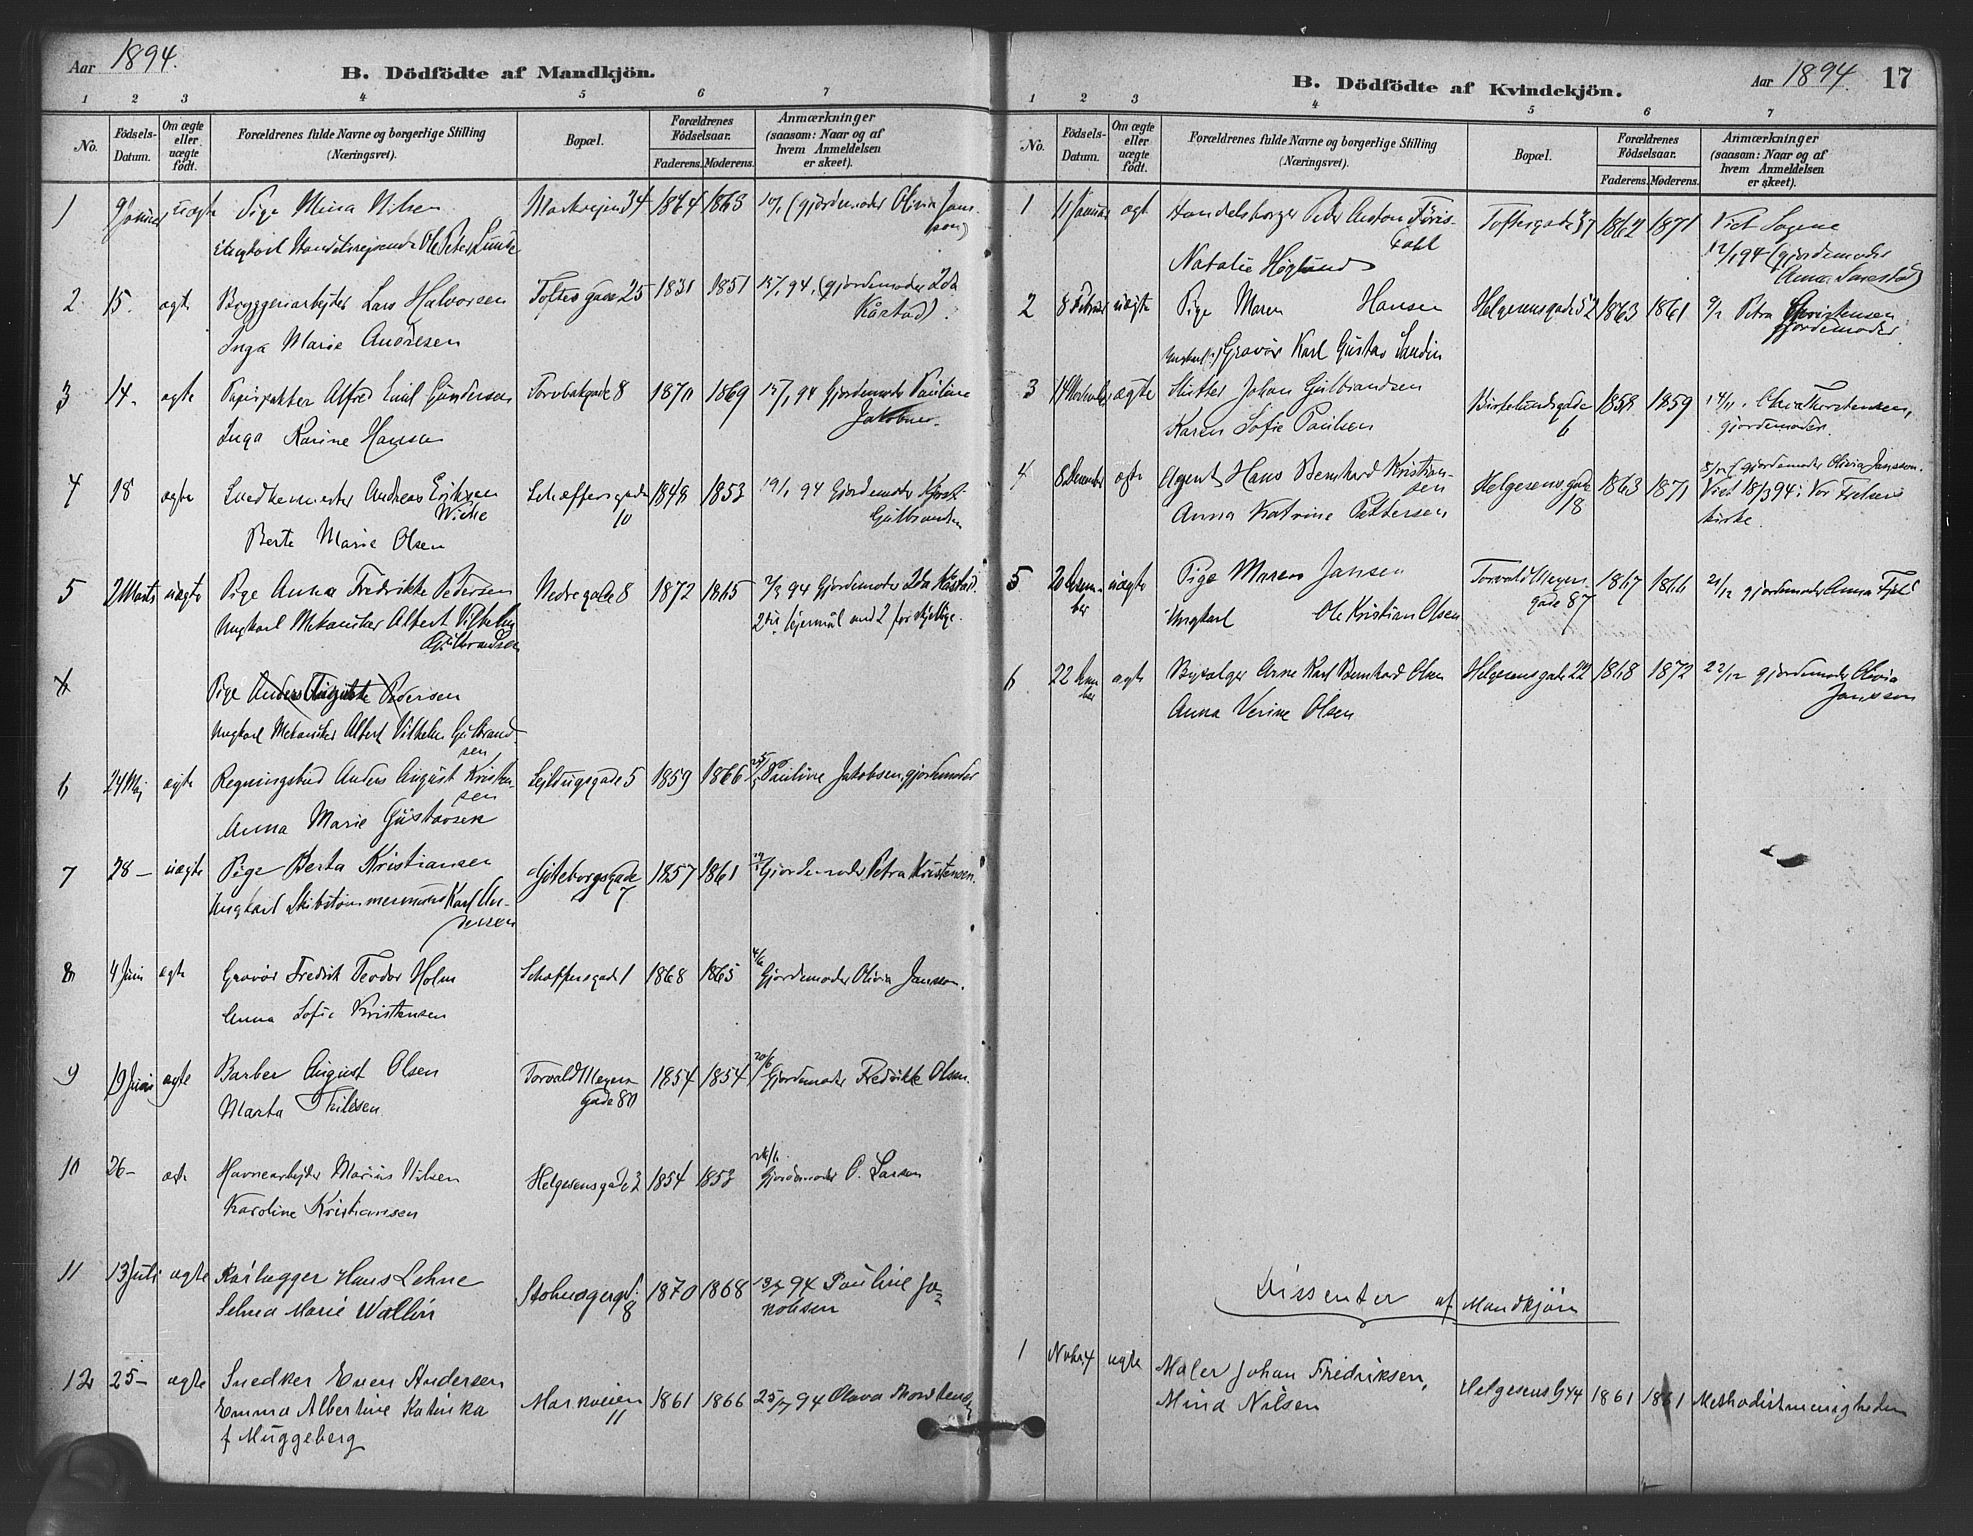 Aar 1894.
B. Dödfödte af Mandkjön.
1 2 3 4 5 6 7
No. Fødsels-Datum. Om ægte eller uægte født. Forældrenes fulde Navne og borgerlige Stilling (Næringsvei). Bopæl. Forældrenes Fødselsaar. Faderens. Moderens. Anmærkninger (saasom: Naar og af hvem Anmeldelsen er skeet).
1 9 Januar uægte Pige Mina Nilsen Markvejen 34 1864 1863 (gjordemoder Olivia Jansson)
Ungkarl Handelsrejsende Ole Peter Lunde
2. 15. ægte Bryggeriarbejder Lars Halvorsen Toftes Gade 25 1831 1851 15/1 94. (gjordemoder Ida Kårstad).
Inga Marie Andresen
3 14. ægte Alfred Emil Gundersen 8 1870 1869 15/1 94 Gjordemoder Pauline Jakobsen.
Inga Karine Hansen
4 18 ægte Snedkermester Andreas Eriksen Schæffersgade 10 1848 1853 19/1 94 Gjordemoder Gulbrandsen
Berte Marie Olsen
5 2 Marts uægte Pige Anna Fredrikke Pedersen Nedregade 8 1872 1865 94 Gjordemoder Ida Kårstad.
Ungkarl Mekaniker Albert Vilhelm Gulbrandsen 2det lejermål med 2 forskjellige.
Pige Pedersen
Ungkarl Mekaniker Albert Vilhelm Gulbrandsen
6 24 Maj ægte Regningsbud Anders August Kristensen Sejldugsgade 5 1859 1866 Pauline Jakobsen, gjordemoder
Anna Marie Gustavsen
7 28 – uægte Pige Berta Kristiansen Göteborggade 7 1857 1861 Gjordemoder Petra Kristensen.
Ungkarl Skibstømmermand Karl Andersen
8 4 Juni ægte Gravør Fredrik Teodor Holm Schæffersgade 1 1868 1865 4/6 Gjordemoder Olivia Jansson.
Anna Sofie Kristensen
9 19 Juni ægte Barber August Olsen Torvald Meyers Gade 80 1854 1854 20/6 Gjordemoder Fredrikke Olsen.
Marta
10 26 – ægte Havnearbejder Marius Nilsen Helgesensgade 3 1854 1853 Gjordemoder O. Larsen
Karoline Kristiansen
11 13 Juli ægte Hans Lehne 8 1870 1868 13/7 94 Pauline Jakobsen
Selma Marie Wallin
12 25 – ægte Snedker Even Andersen Markveien 11 1861 1866 25/7 94 Olava Thorstensen
Emma Albertine Katinka
f. Muggeberg
B. Dödfödte af Kvindekjön. Aar 1894. 17
1 2 3 4 5 6 7
No. Fødsels-Datum. Om ægte eller uægte født. Forældrenes fulde Navne og borgerlige Stilling (Næringsvei). Bopæl. Forældrenes Fødselsaar. Faderens. Moderens. Anmærkninger (saasom: Naar og af hvem Anmeldelsen er skeet).
1 11 Januar ægt Handelsborger Peder Anton Toftesgade 1862 1871 Viet Sagene
Natalie Höglund 12/1 94 (gjordemoder Anna
2 8 Februar uægte Pige Maren Hansen Helgesensgade 52 1863 1861 9/2 Petra Christensen gjordemoder
Ungkarl Gravör Karl Gustav Sandin
3 14 ægte Johan Gulbrandsen Birkelundsgade 6 1858 1859 14/11. Thorstensen, gjordemoder.
Karen Sofie Paulsen
4 8 December ægte Agent Hans Bernhard Kristiansen Helgesensgade 18 1863 1871 (gjordemoder Olivia Jansson. Viet 18/3 94 i Vor Frelsers kirke.
Anna Katrine Pettersen
5 20 December uægte Pige Maren Jansen Torvald Meyersgade 87 1867 1866 21/12 gjordemoder Anna
Ungkarl Ole Kristian Olsen
6 22 December ægte Arne Karl Bernhard Olsen Helgesensgade 22 1868 1872 22/12 gjordemoder Olivia Jansson
Anna Verine Olsen
Dissenter af Mandkjön
1 Novbr. 4 ægte Maler Johan Fredriksen, Helgesens G 44 1861 1861 Methodistmenigheden
Mina Nilsen